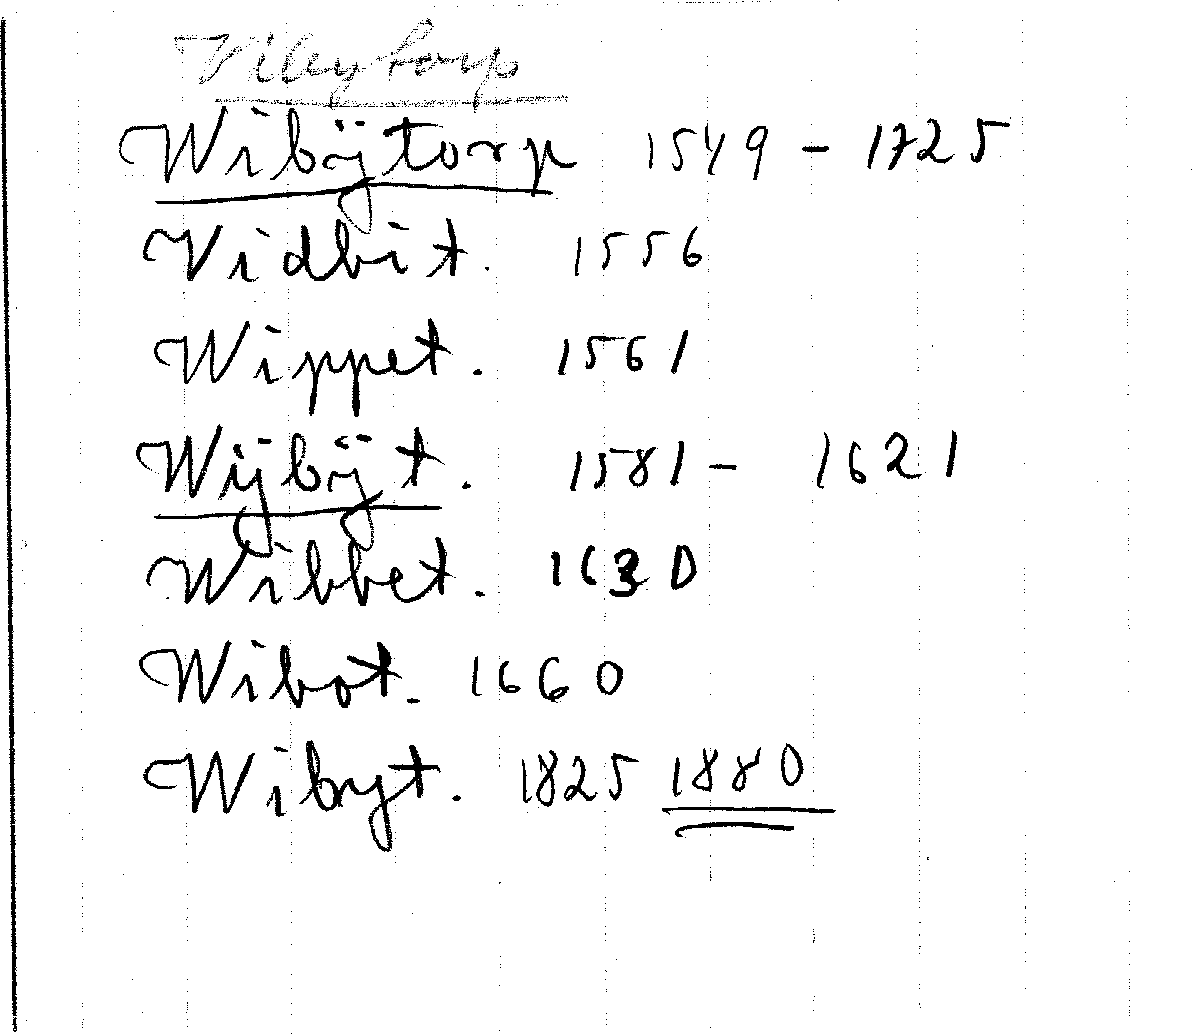 Vibytorp
Wibÿtorp 1549 - 1725
Vidbit. 1556
Wippet. 1561
Wÿbÿt. 1581 - 1621
Wibbet. 1630
Wibot. 1660
Wibyt. 1825 1880